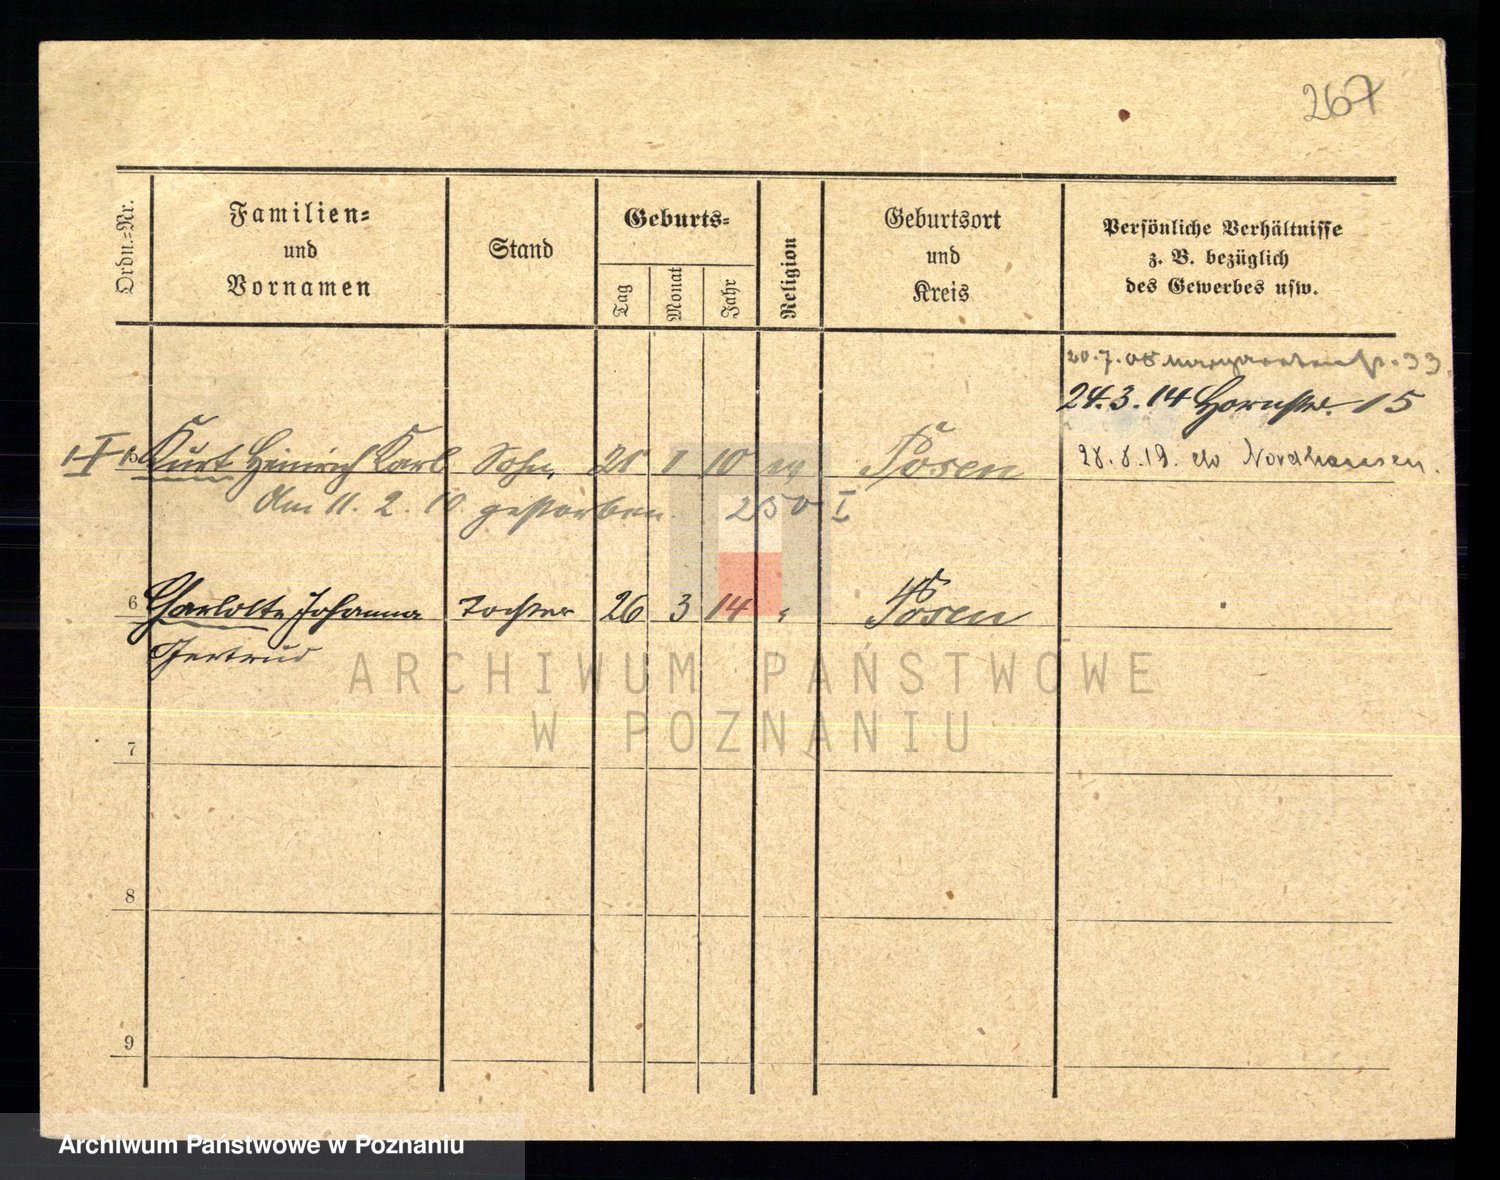 267
Ordn.-Nr.
Familien-
und
Vornamen
Stand
Geburts-
Tag
Monat
Jahr
Religion
Geburtsort
und
Kreis
Persönliche Verhältnisse
z. B. bezüglich
des Gewerbes usw.
20.7.08 Margaretenstr. 33
24.3.14 Hornstr. 15
28.8.19. Nordhausen.
5 Kurt Heinrich Karl Sohn 1 10 Posen
Am 11. 2. 10 gestorben. 250 I
6 Charlotte Johanna Tochter 26 3 14 " Posen
Gertrud
7
8
9
ARCHIWUM PAŃSTWOWE
W POZNANIU
Archiwum Państwowe w Poznaniu